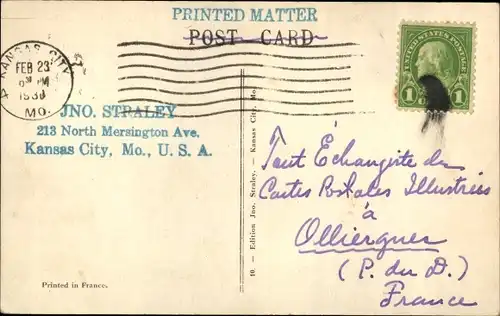 PRINTED MATTER
POST CARD
KANSAS CITY
FEB 23
MO.
UNITED STATES POSTAGE
1 1
JNO. STRALEY
213 North Mersington Ave.
Kansas City, Mo., U. S. A.
10. – Edition Jno. Straley. – Kansas City, Mo.
Tout Échangiste de
Cartes Postales Illustrées
à
Olliergues
(P. du D.)
France
Printed in France.